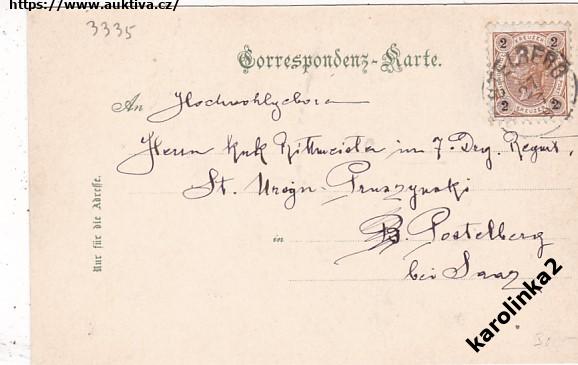 https://www.auktiva.cz/
3335
Correspondenz-Karte.
2 KREUZER 2
2 KREUZER 2
An Hochwohlgebora
Herrn KuK Rittmeister im 7. Drg. Regmt.
St. Urogn. Pruszynski
in B. Postelberg
bei Saaz
Nur für die Adresse.
karolinka2